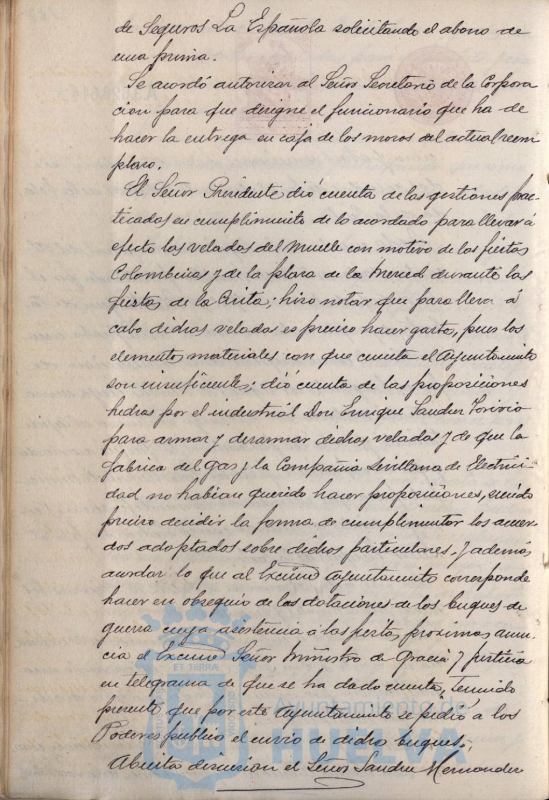 de Seguros La Española solicitando el abono de
una prima.
Se acordó autorizar al Señor Secretario de la Corpora
cion para que designe el funcionario que ha de
hacer la entrega en caja de los mozos del actual reem
plazo.
El Señor Presidente dió cuenta de las gestiones prac-
ticadas en cumplimiento de lo acordado para llevar á
efecto las veladas del Muelle con motivo de las fiestas
Colombinas y de la plaza de la Merced durante las
fiestas de la Cinta; hizo notar que para llevar á
cabo dichas veladas es preciso hacer gastos, pues los
elementos materiales con que cuenta el Ayuntamiento
son insuficientes; dió cuenta de las proposiciones
hechas por el industrial Don Enrique Sanchez Torivio
para armar y desarmar dichas veladas y de que la
fabrica del Gas y la Compañia Sevillana de Electrici-
dad no habian querido hacer proposiciones, siendo
preciso decidir la forma de cumplimentar los acuer-
dos adoptados sobre dichos particulares. Y además
acordar lo que al Excmo Ayuntamiento corresponde
hacer en obsequio de las dotaciones de los buques de
guerra cuya asistencia á las fiestas proximas anun-
cia el Excmo Señor Ministro de Gracia y Justicia
en telegrama de que se ha dado cuenta, teniendo
presente que por este Ayuntamiento se pidió a los
Poderes publicos el envio de dichos buques.
Abierta discusion el Señor Sanchez Hernandez
Ayuntamiento de
HUELVA